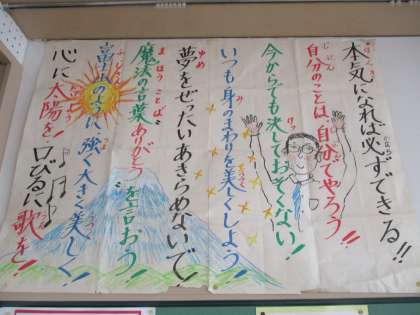 本気になれば必ずできる!!
自分のことは、自分でやろう!!
今からでも決しておそくない!
いつも身のまわりを美しくしよう!
夢をぜったいあきらめないで!
魔法の言葉"ありがとう"を言おう!
富士山のように、強く大きく美しく!
心に太陽を!口びるに歌を!!